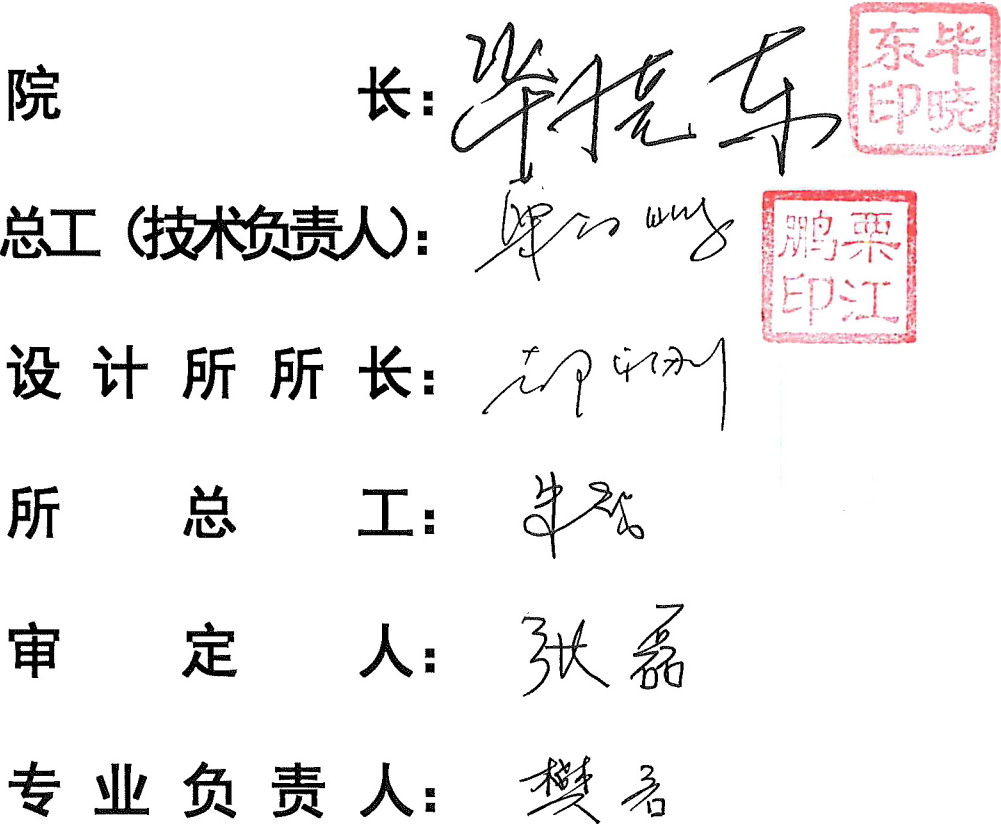 院长：毕晓东 毕晓东印
总工（技术负责人）： 栗江鹏印
设计所所长：
所总工：朱
审定人：张磊
专业负责人：樊